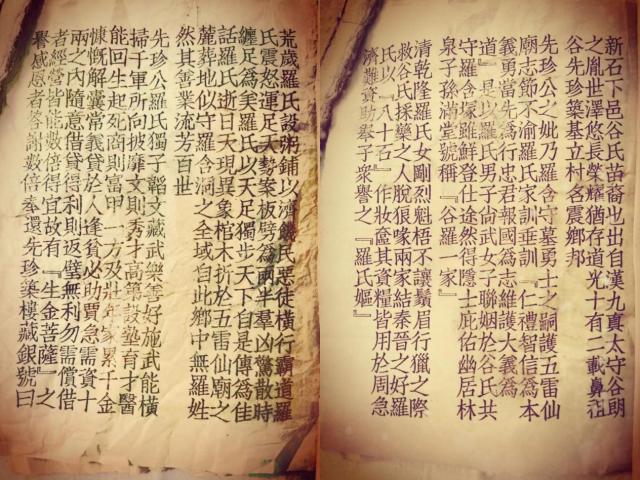 新石下邑谷氏苗裔也出自漢九真太守谷朗
之胤世澤悠長榮耀猶存道光十有二載鼻祖
谷先珍築基立村名震鄉邦
先珍公之妣乃羅含守墓勇士之嗣護五雷仙
廟志節不渝羅氏家訓垂訓『仁禮智信為本
義勇當先為行忠君報國為志維護大義為
道』是以羅氏男子尚武女子聯姻於谷氏共
守羅含塚雖鮮登仕途然得隱士庇佑幽居林
泉子孫滿堂號稱『谷羅一家』
清乾隆羅氏女剛烈魁梧不讓鬚眉行獵之際
救谷氏採藥之人脫狼喙兩家結秦晉之好羅
氏以『八十石』作妝奩其資糧皆用於周急
濟難資助舉子衆譽之『羅氏嫗』
荒歲羅氏設粥鋪以濟饑民惡徒橫行霸道羅
氏震怒運足大勢案板劈為兩半羣凶驚散時
纏足為美羅氏以天足獨步天下自是傳為佳
話羅氏逝日天現異象棺木折於五雷仙廟之
麓葬地似守羅含洞之全域自此鄉中無羅姓
然其善業流芳百世
先珍公羅氏獨子韜文藏武樂善好施武能橫
掃千軍所向披靡文則秀才高築設塾育才醫
能回生起死商則富甲一方及壯年家累千金
慷慨解囊常義貸於人逢貧必助賈急需資十
兩之內隨意借貸得利則返璧無利勿需償借
者經營皆能數倍得宜故有『生金菩薩』之
譽感恩者答謝數倍奉還先珍築樓藏銀號曰